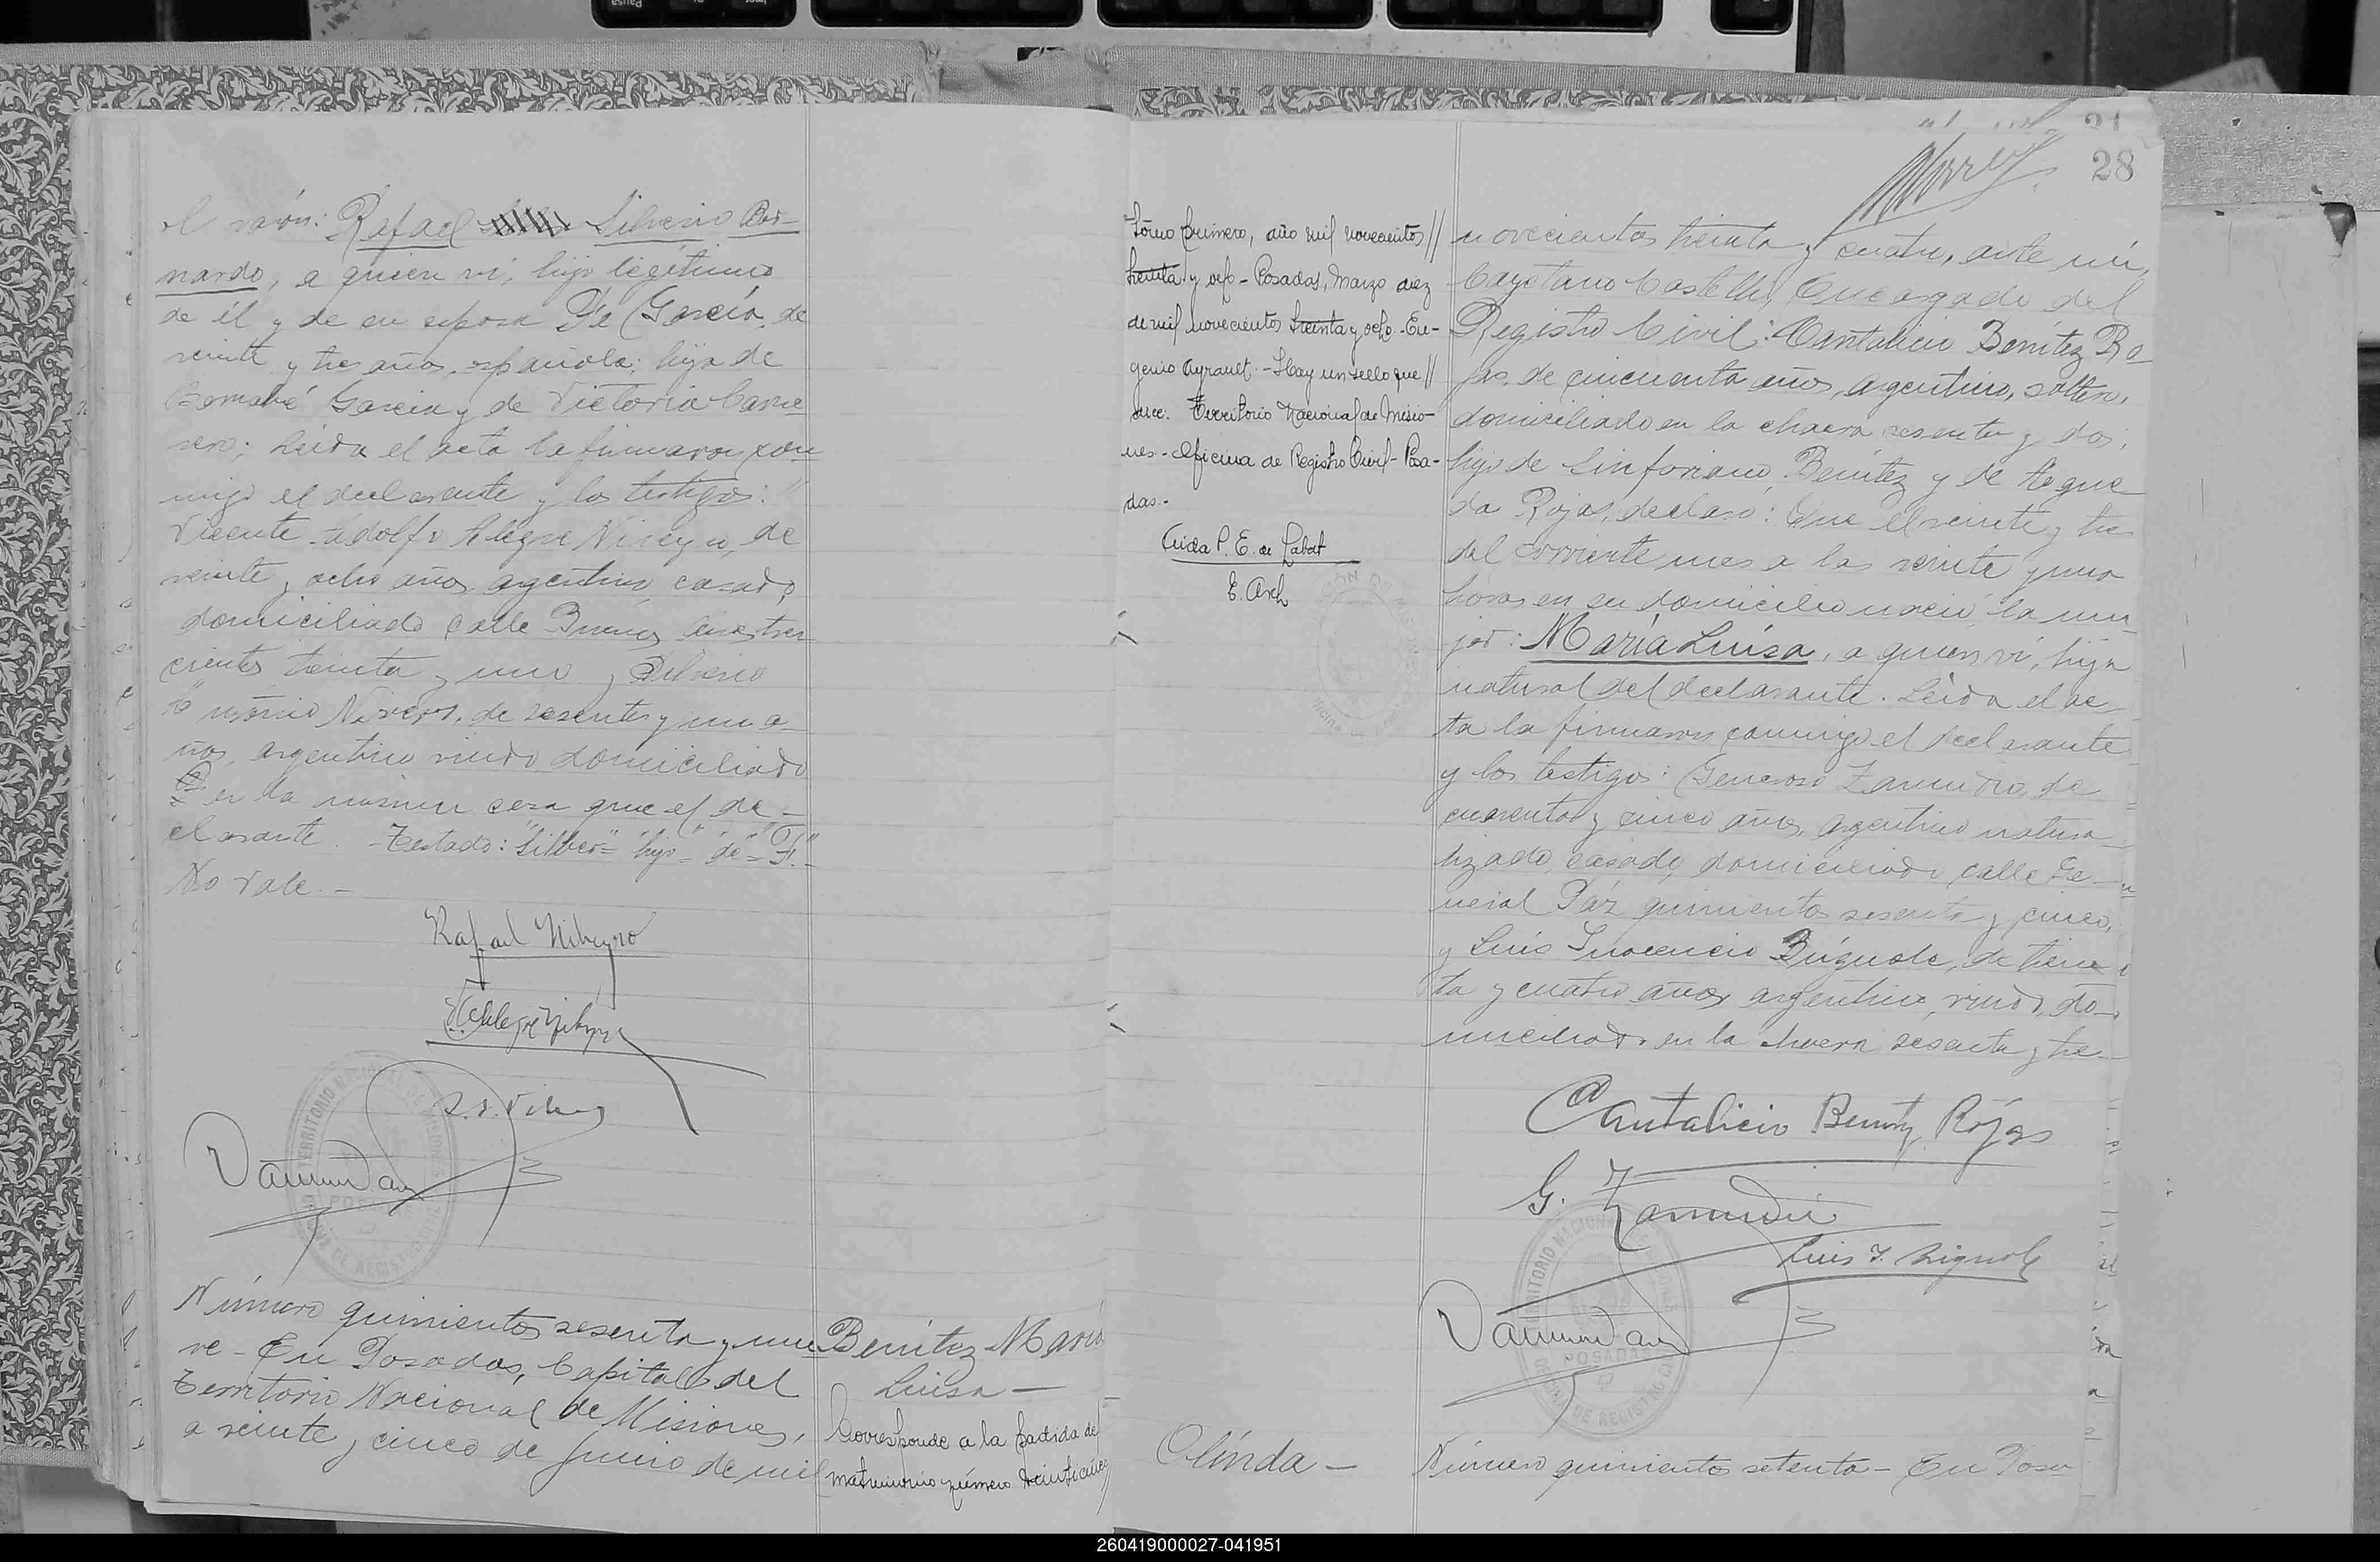 el varón: Rafael Silverio Ber-
nardo, a quien ví, hijo legítimo
de él y de su esposa Fé García, de
veinte y tres años, española, hija de
Bernabé García y de Victoria
sero; Leída el acta la firmaron con
migo el declarante y los testigos:
Vicente Adolfo Alegre Niveyro, de
veinte y ocho años, argentino, casado,
domiciliado calle Buenos Aires tres
cientos treinta y uno y Silverio
Antonio Niveyro, de sesenta y un a-
ños, argentino viudo domiciliado
en la misma casa que el de-
clarante. - Testado: "Silver" - "hijo" - "de" - "F." -
No vale. -
Rafael Niveyro
POSADAS
Número quinientos sesenta y nue
ve - En Posadas, Capital del
Territorio Nacional de Misiones,
a veinte y cinco de Junio de mil
Benítez María
Luisa -
Corresponde a la partida de
matrimonio número treinticinco
28
Tomo primero, año mil novecientos //
treinta y ocho - Posadas, Marzo diez
de mil novecientos treinta y ocho. - Eu-
genio Ayrault. - Hay un sello que //
dice. Territorio Nacional de Misio-
nes - Oficina de Registro Civil - Posa-
das. -
P. E. de Labat
E. Arch
novecientos treinta y cuatro, ante mí,
Cayetano Castelli, Encargado del
Registro Civil: Cantalicio Benítez Ro
jas, de cincuenta años, argentino, soltero,
domiciliado en la chacra sesenta y dos,
hijo de Sinforiano Benítez y de Reque
da Rojas, declaró: Que el veinte y tres
del corriente mes a las veinte y una
horas en su domicilio nació la mu
jer: María Luisa, a quien ví, hija
natural del declarante. Leída el ac
ta la firmaron conmigo el declarante
y los testigos: Generoso Zamudio, de
cuarenta y cinco años, argentino natura
lizado, casado, domiciliado calle Ge-
neral Páz quinientos sesenta y cinco,
y Luis Inocencio Búgnolo, de trein
ta y cuatro años argentino, viudo, do-
miciliado en la chacra sesenta y tre-
Cantalicio Benitz Rójas
G. Zamudio
Luis I.
TERRITORIO NACIONAL DE MISIONES
POSADAS
OFICINA DE REGISTRO CIVIL
Olinda -
Número quinientos setenta - En Posa
260419000027-041951